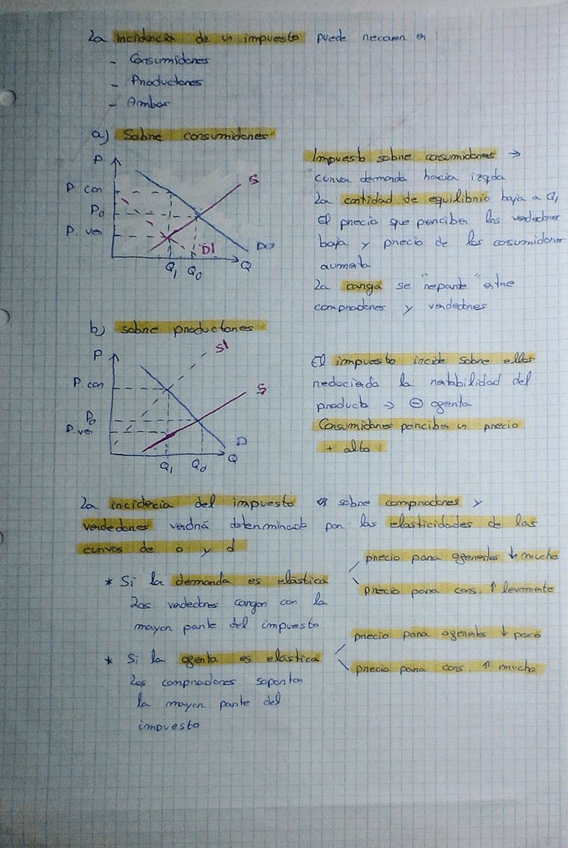 La incidencia de un impuesto puede recaer en:
- Consumidores
- Productores
- Ambos
a) Sobre consumidores
P
P. con
P0
P. ven
S
D1
D0
Q1 Q0 Q
Impuesto sobre consumidores →
curva demanda hacia izqda
La cantidad de equilibrio baja a Q1
El precio que perciben los vendedores
baja y precio de los consumidores
aumenta
La carga se "reparte" entre
compradores y vendedores
b) sobre productores
P
P. con
P0
P. ven
S1
S
D
Q1 Q0 Q
El impuesto incide sobre ellos
reduciendo la rentabilidad del
producto → ⊖ oferta
Consumidores perciben un precio
+ alto
La incidencia del impuesto sobre compradores y
vendedores vendrá determinado por las elasticidades de las
curvas de o y d
* Si la demanda es elástica
Los vendedores cargan con la
mayor parte del impuesto
precio para oferentes ↓ mucho
precio para cons. ↑ levemente
* Si la oferta es elástica
Los compradores soportan
la mayor parte del
impuesto
precio para oferentes ↓ poco
precio para cons. ↑ mucho